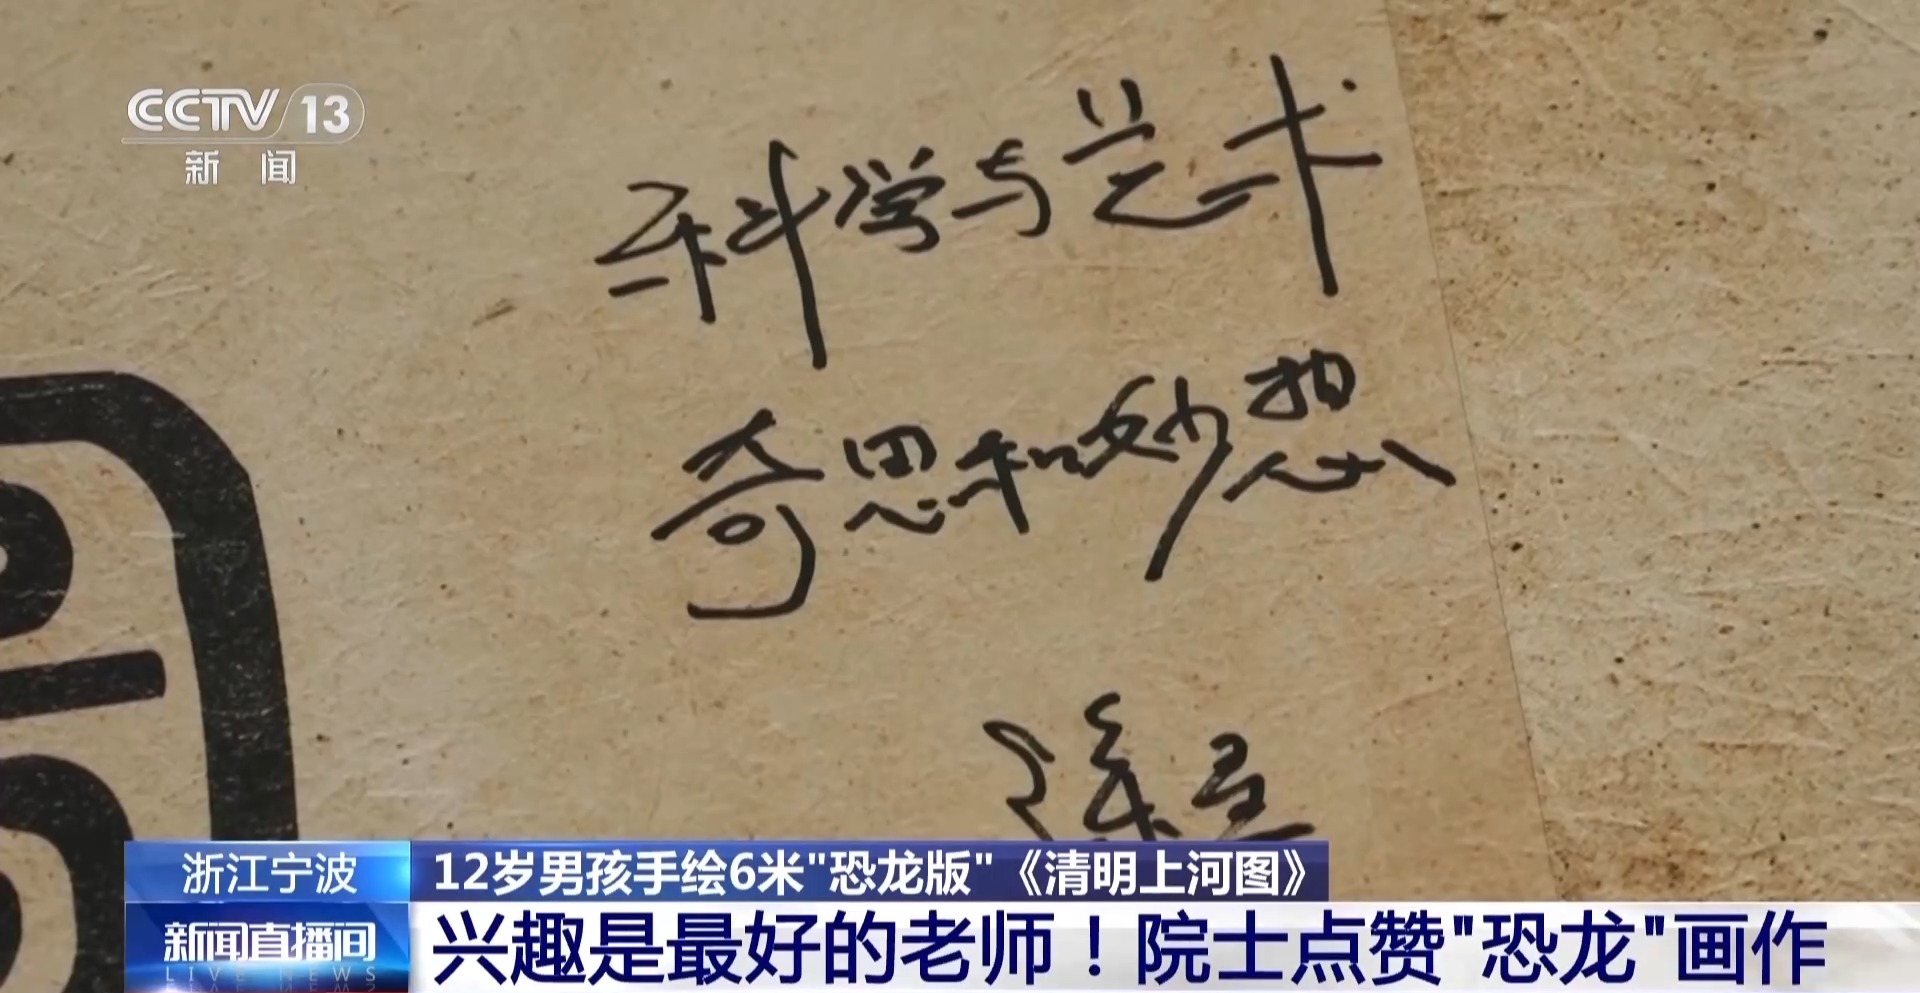 CCTV 13
新闻
科学与艺术
奇思和妙想
浙江宁波
12岁男孩手绘6米"恐龙版"《清明上河图》
新闻直播间
LIVE NEWS
兴趣是最好的老师！院士点赞"恐龙"画作